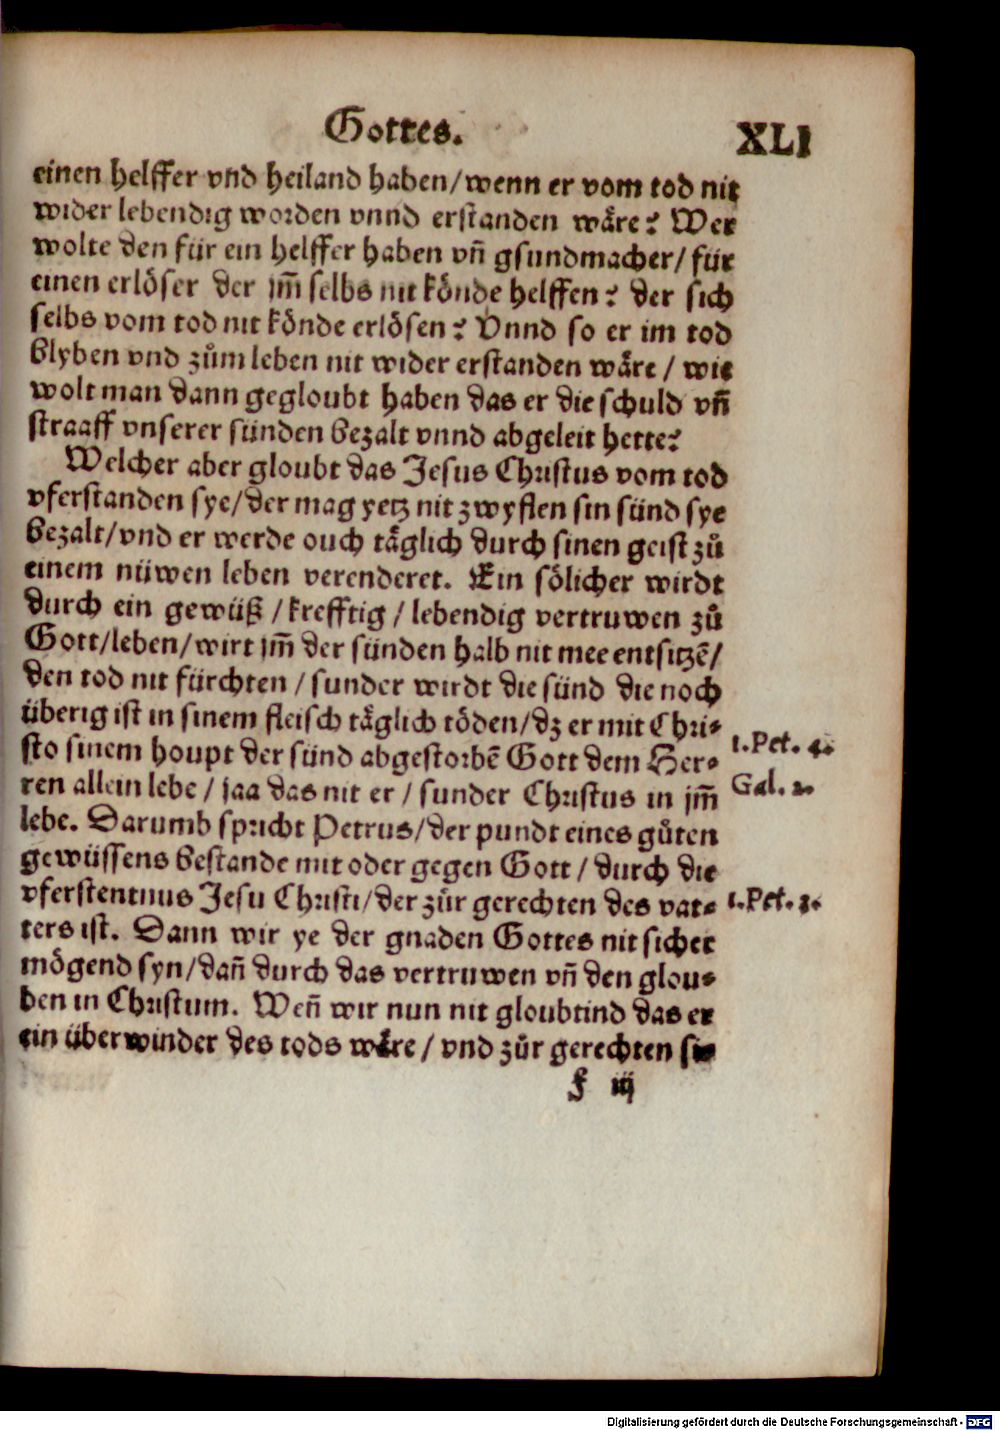 Gottes.
XLI
einen helffer vnd heiland haben/wenn er vom tod nit
wider lebendig worden vnnd erstanden wåre? Wer
wolte den für ein helffer haben vñ gsundmacher/ für
einen erlöser der jm̃ selbs nit könde helffen? der sich
selbs vom tod nit könde erlösen? Vnnd so er im tod
blyben vnd zům leben nit wider erstanden wåre / wie
wolt man dann gegloubt haben das er die schuld vñ
straaff vnserer sünden bezalt vnnd abgeleit hette?
Welcher aber gloubt das Jesus Christus vom tod
vferstanden sye/der mag yetz nit zwyflen sin sünd sye
bezalt/vnd er werde ouch tåglich durch sinen geist zů
einem nüwen leben verenderet. Ein sölicher wirdt
durch ein gewüß /krefftig / lebendig vertruwen zů
Gott/leben/wirt jm̃ der sünden halb nit mee entsitzẽ/
den tod nit fürchten / sunder wirdt die sünd die noch
überig ist in sinem fleisch tåglich töden/dz er mit Chri-
sto sinem houpt der sünd abgestorbẽ Gott dem Her-
ren allein lebe / jaa das nit er / sunder Christus in jm̃
lebe. Darumb spricht Petrus/der pundt eines gůten
gewüssens bestande mit oder gegen Gott / durch die
vferstentnus Jesu Christi/der zůr gerechten des vat-
ters ist. Dann wir ye der gnaden Gottes nit sicher
mögend syn/dañ durch das vertruwen vñ den glou-
ben in Christum. Weñ wir nun nit gloubtind das er
ein überwinder des tods wåre / vnd zůr gerechten si-
f iij
1.Pet. 4.
Gal. 2.
1.Pet. 3.
Digitalisierung gefördert durch die Deutsche Forschungsgemeinschaft - DFG